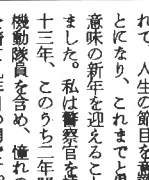 れて、人生の節目を無難
とになり、これまでと異
意味の新年を迎えること
ました。私は警察官を拝
十三年、このうち二年間
機動隊員を含め、憧れの